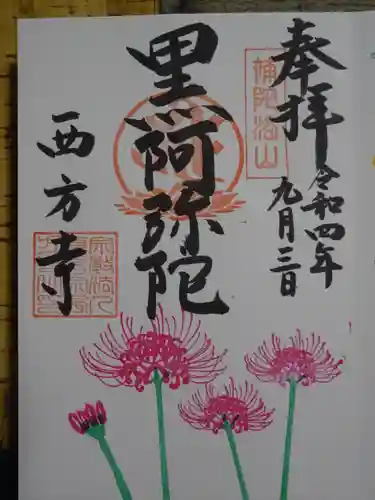 奉拝
令和四年
九月三日
補陀洛山
黒阿弥陀
西方寺